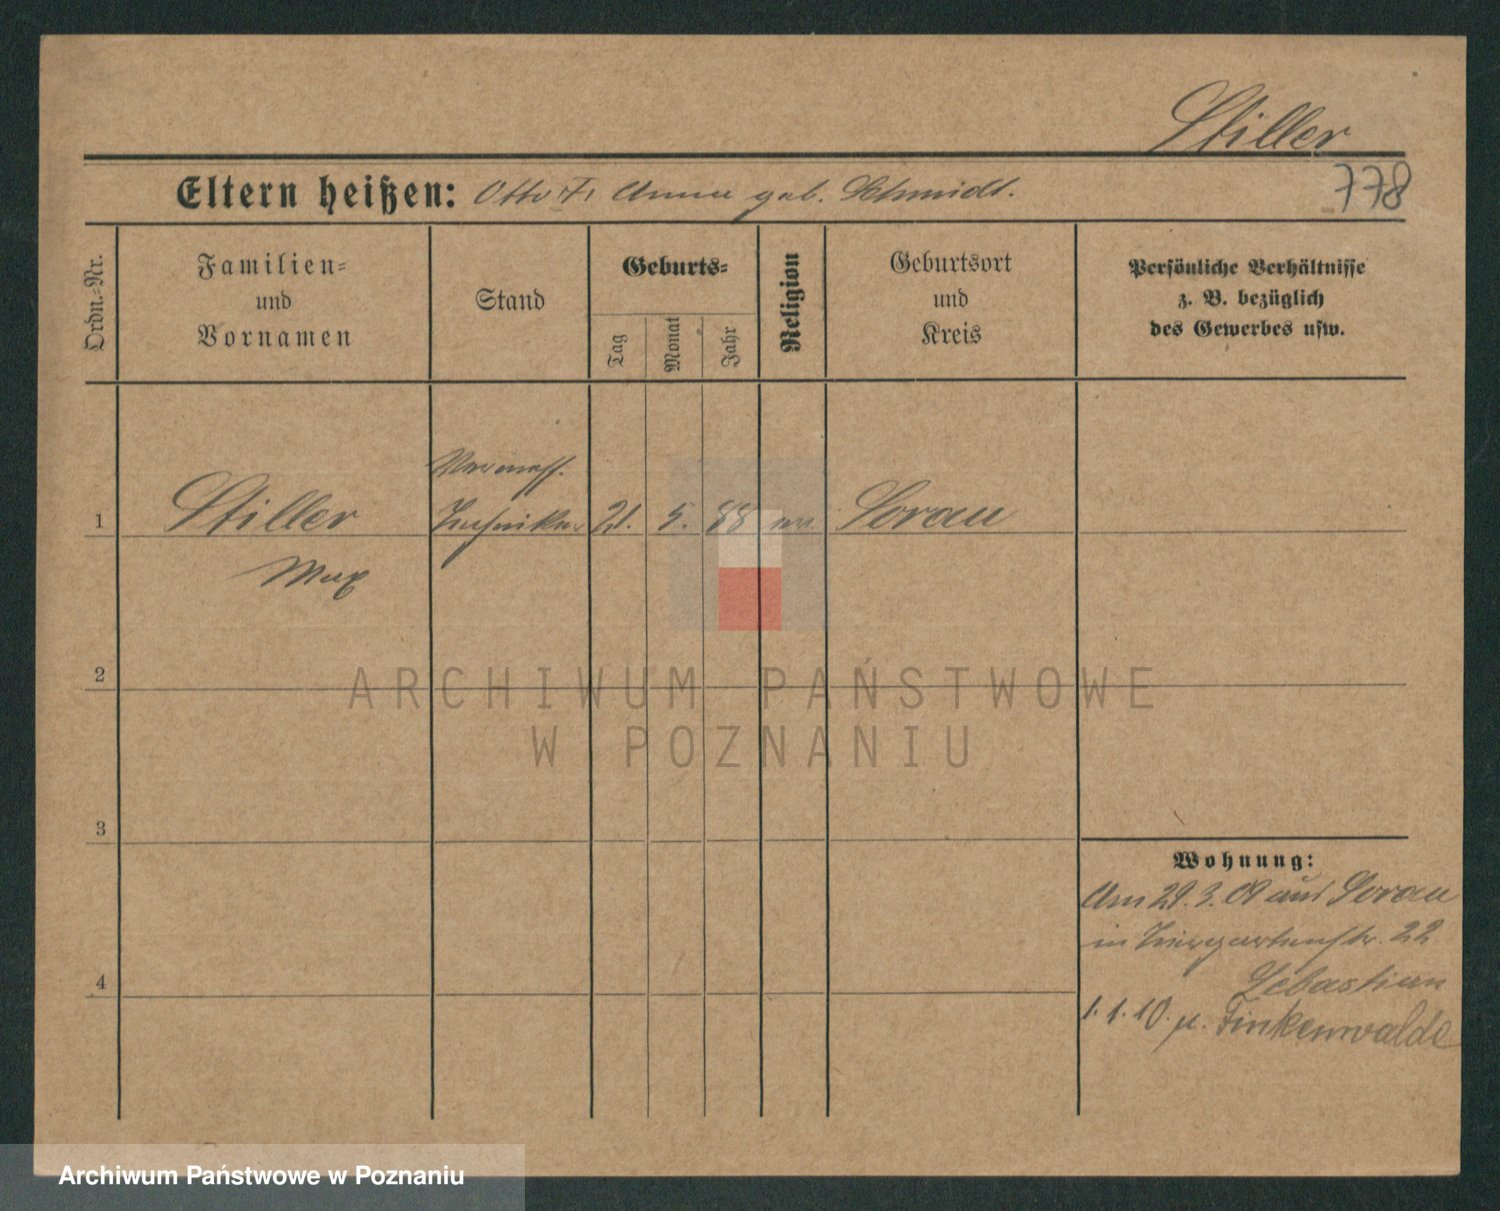 Stiller
Eltern heißen: Otto F. Anna geb. Schmidt.
778
Ordn.-Nr.
Familien-
und
Vornamen
Stand
Geburts-
Tag
Monat
Jahr
Religion
Geburtsort
und
Kreis
Persönliche Verhältnisse
z. B. bezüglich
des Gewerbes usw.
Vermess.
1 Stiller Techniker 21. 5. 88 ev. Sorau
Max
2
ARCHIWUM PAŃSTWOWE
W POZNANIU
3
Wohnung:
Am 29.3.09 aus Sorau
in Tiergartenstr. 22
4
Sebastian
1.1.10. n. Finkenwalde
Archiwum Państwowe w Poznaniu